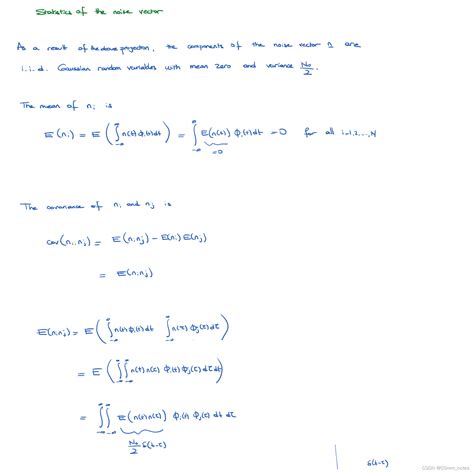 Statistics of the noise vector
As a result of the above projection, the components of the noise vector n are
i.i.d. Gaussian random variables with mean zero and variance N₀/2.
The mean of nᵢ is
E(nᵢ) = E(∫_{-∞}^{∞} n(t) φᵢ(t) dt) = ∫_{-∞}^{∞} E(n(t)) φᵢ(t) dt = 0 for all i=1,2,...,N
=0
The covariance of nᵢ and nⱼ is
cov(nᵢ,nⱼ) = E(nᵢnⱼ) − E(nᵢ)E(nⱼ)
= E(nᵢnⱼ)
E(nᵢnⱼ) = E(∫_{-∞}^{∞} n(t) φᵢ(t) dt ∫_{-∞}^{∞} n(τ) φⱼ(τ) dτ)
= E(∫_{-∞}^{∞}∫_{-∞}^{∞} n(t) n(τ) φᵢ(t) φⱼ(τ) dτ dt)
= ∫_{-∞}^{∞}∫_{-∞}^{∞} E(n(t)n(τ)) φᵢ(t) φⱼ(τ) dt dτ
N₀/2 δ(t-τ)
δ(t-τ)